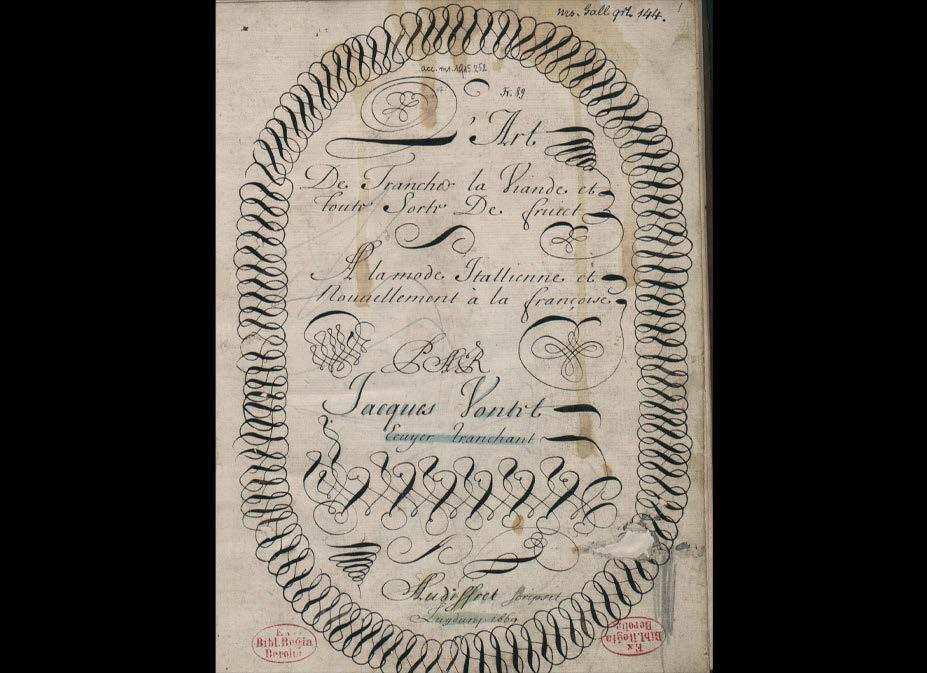 ms. Gall. qrt. 144.
1
acc. ms. 1915. 252.
Fr. 89
L'Art
De Trancher la Viande et
toute Sorte De fruict
A la mode Itallienne et
Nouuellement à la françoise
PAR
Jacques Vontet
Ecuyer tranchant
Audiffret scripsit
Lugduny 1669
Ex
Bibl. Regia
Berolin
Ex
Bibl. Regia
Berolin